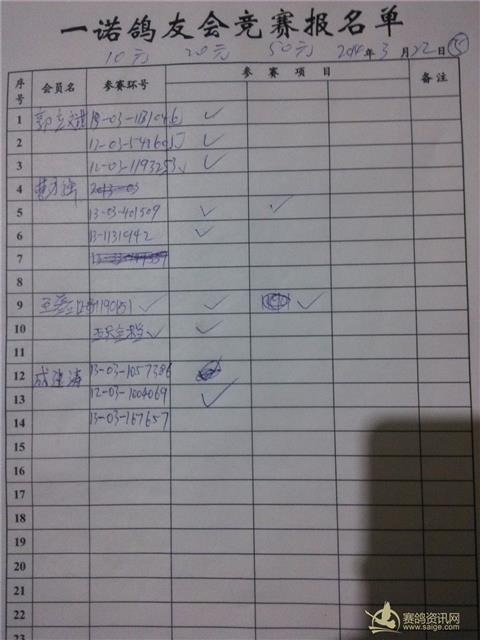 一诺鸽友会竞赛报名单
10元 20元 50元 2014年3月22日 ⑤
序号 会员名 参赛环号 参赛项目 备注
1 13-03-1181046 ✓
2 12-03-542605 ✓
3 12-03-1193253 ✓
4 2013-03
5 13-03-401509 ✓ ✓
6 13-1131942 ✓
7
8
9 ✓ ✓ ✓
10 ✓ ✓
11
12 成建涛 13-03-1057386
13 12-03-1004069 ✓
14 13-03-167657
15
16
17
18
19
20
21
22
23
赛鸽资讯网
www.saige.com